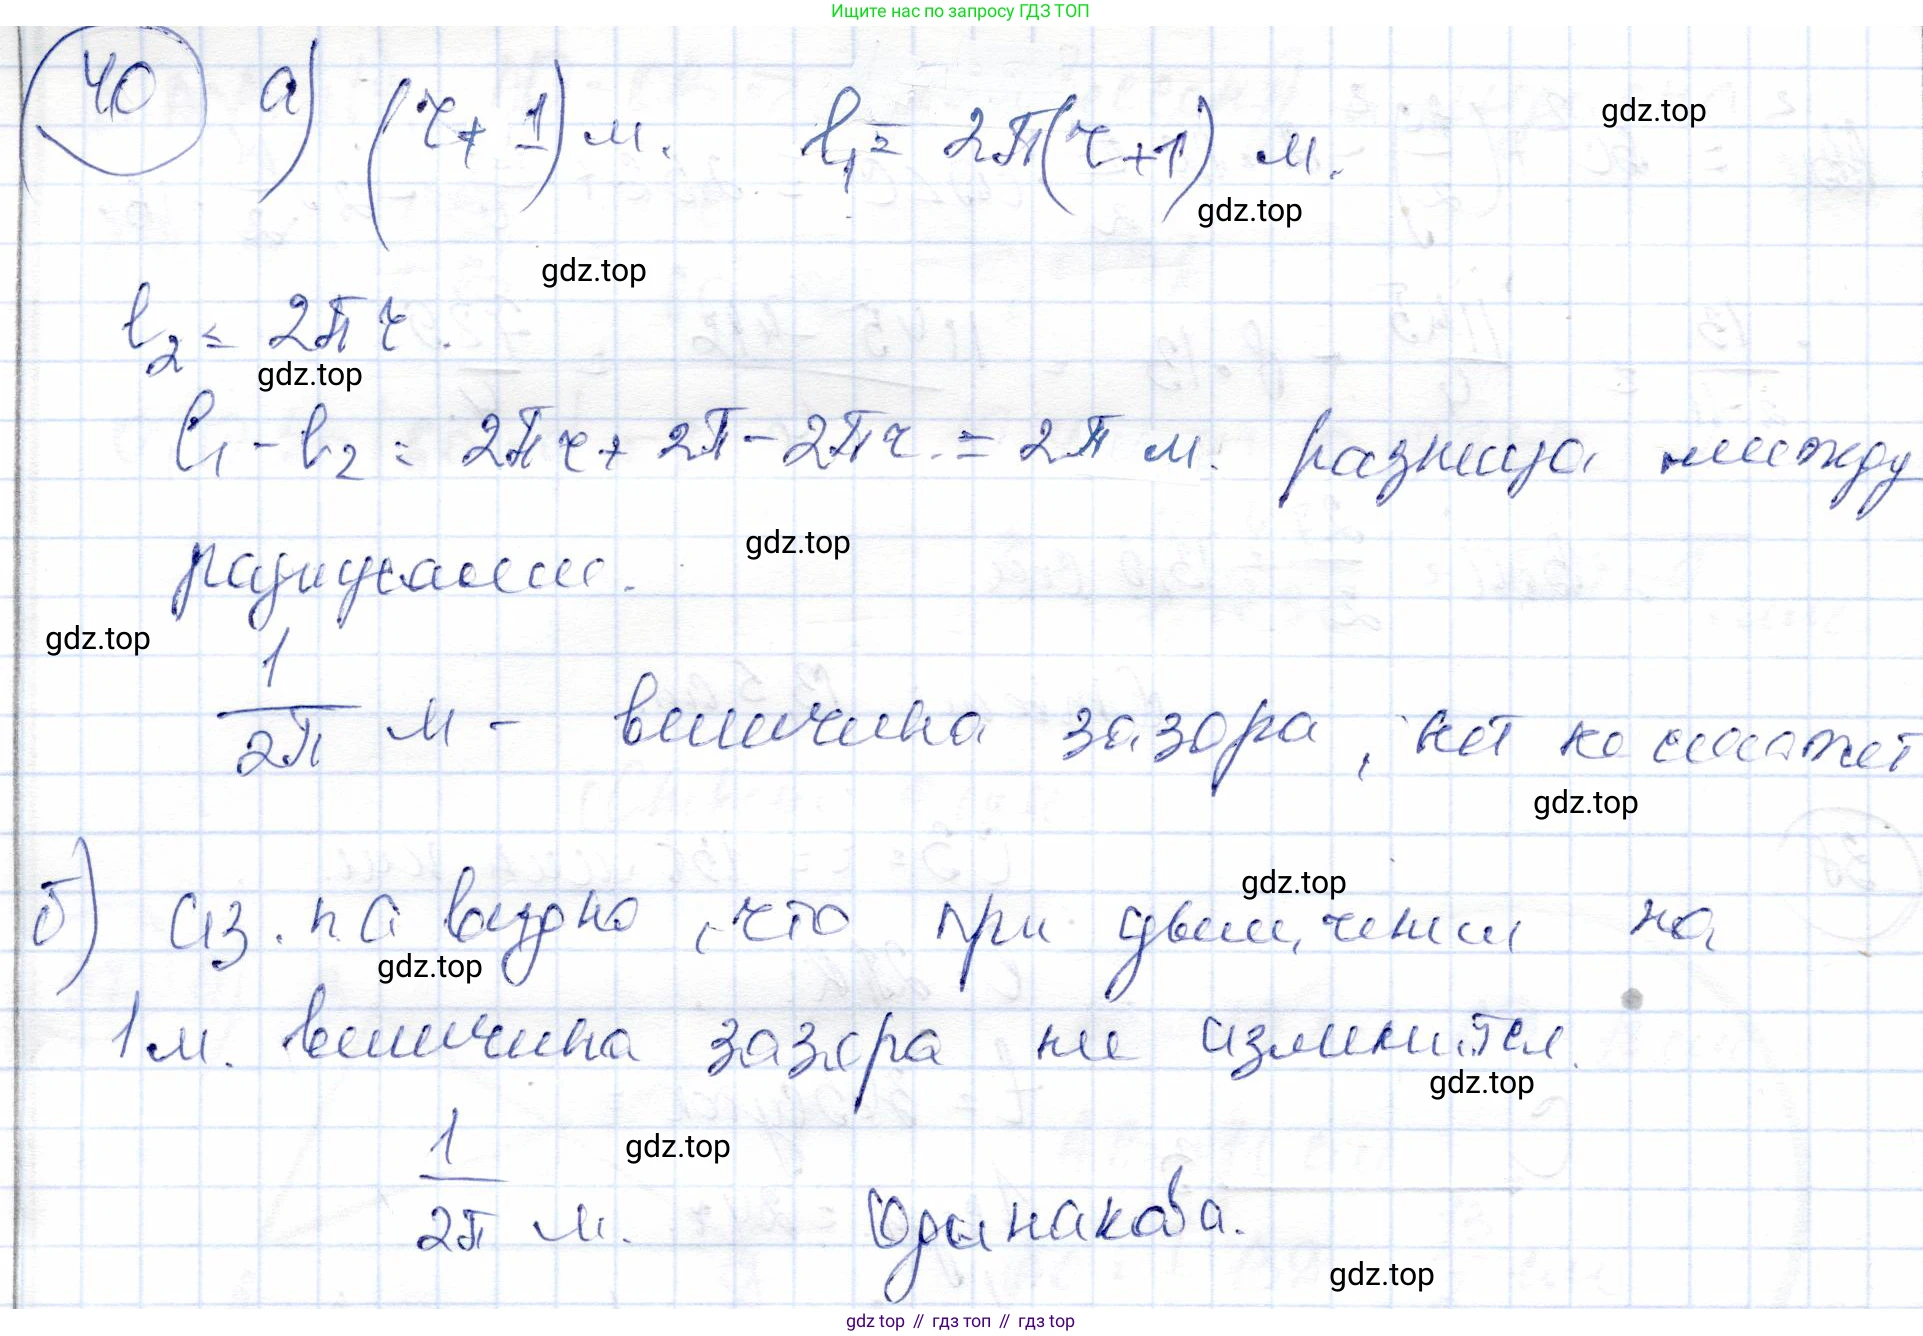 Ищите нас по запросу ГДЗ ТОП
40 а) (r + 1) м. l₁ = 2π(r+1) м.
gdz.top
gdz.top
gdz.top
l₂ = 2πr.
gdz.top
l₁ - l₂ = 2πr + 2π - 2πr = 2π м. разница между
gdz.top
радиусами.
gdz.top
1/2π м - величина зазора, кот не сможет
gdz.top
gdz.top
б) из п. а видно, что при увеличении на
gdz.top
1 м. величина зазора не изменится.
gdz.top
gdz.top
1/2π м. Одинакова.
gdz.top
gdz top // гдз топ // гдз top